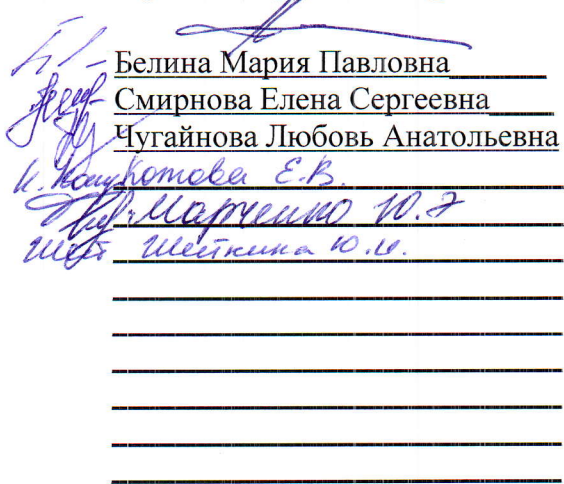 Белина Мария Павловна
Смирнова Елена Сергеевна
Чугайнова Любовь Анатольевна
Е.В.
Марченко Ю.Э
Шейкина Ю.И.